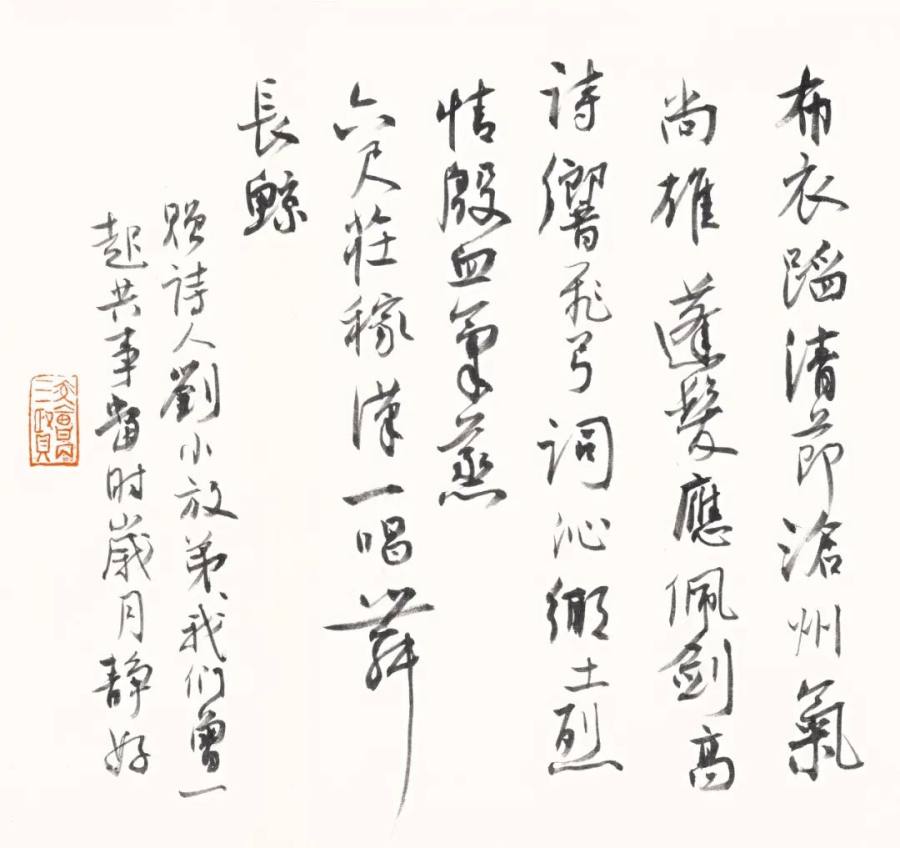 布衣蹈清節滄州氣
尚雄蓬髮應佩劍高
詩響飛弓詞沁鄉土烈
情殷血氣蒸
六尺莊稼漢一唱舞
長鯨
贈诗人劉小放弟、我们曾一
起共事當时歲月静好